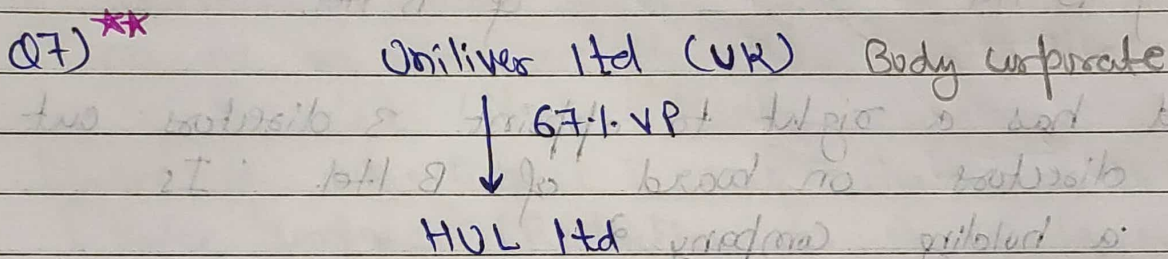 Q7) ** Uniliver ltd (UK) Body corporate
67% VP
HUL ltd